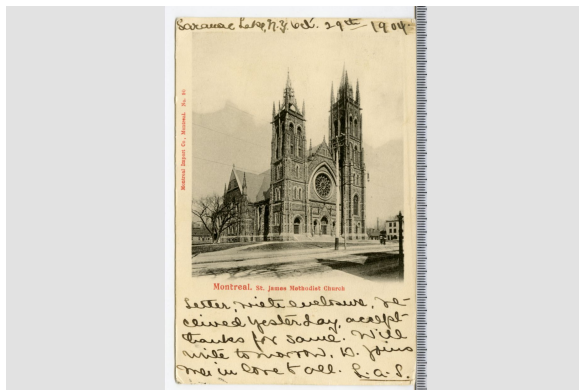 Saranac Lake, N.Y. Oct. 29th 1904
Montreal Import Co., Montreal. No. 80
Montreal. St. James Methodist Church
Letter, with enclosure, re-
ceived yesterday, accept
thanks for same. Will
write tomorrow. D. joins
me in love to all. L.A.S.